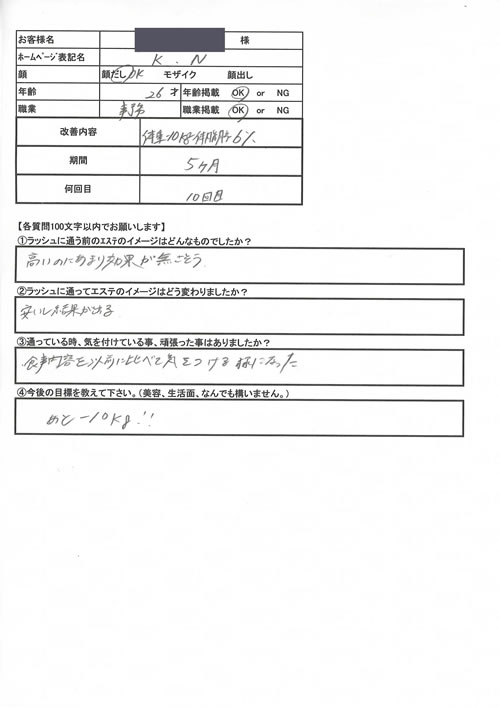 お客様名 様
ﾎｰﾑﾍﾟｰｼﾞ表記名 K.N
顔 顔だしOK モザイク 顔出し
年齢 26 才 年齢掲載 OK or NG
職業 事務 職業掲載 OK or NG
改善内容 体重-10kg 体脂肪 6%
期間 5ヶ月
何回目 10回目
【各質問100文字以内でお願いします】
①ラッシュに通う前のｴｽﾃのイメージはどんなものでしたか？
高いのにあまり効果が無さそう
②ラッシュに通ってエステのイメージはどう変わりましたか？
安いし結果が出る
③通っている時、気を付けている事、頑張った事はありましたか？
食事内容を以前に比べて気をつける様になった
④今後の目標を教えて下さい。（美容、生活面、なんでも構いません。）
あと-10kg!!